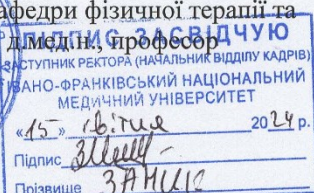 афедри фізичної терапії та
д.мед.н., професор
ПІДПИС ЗАСВІДЧУЮ
ЗАСТУПНИК РЕКТОРА (НАЧАЛЬНИК ВІДДІЛУ КАДРІВ)
ІВАНО-ФРАНКІВСЬКИЙ НАЦІОНАЛЬНИЙ
МЕДИЧНИЙ УНІВЕРСИТЕТ
«15» квітня 2024 р.
Підпис
Прізвище